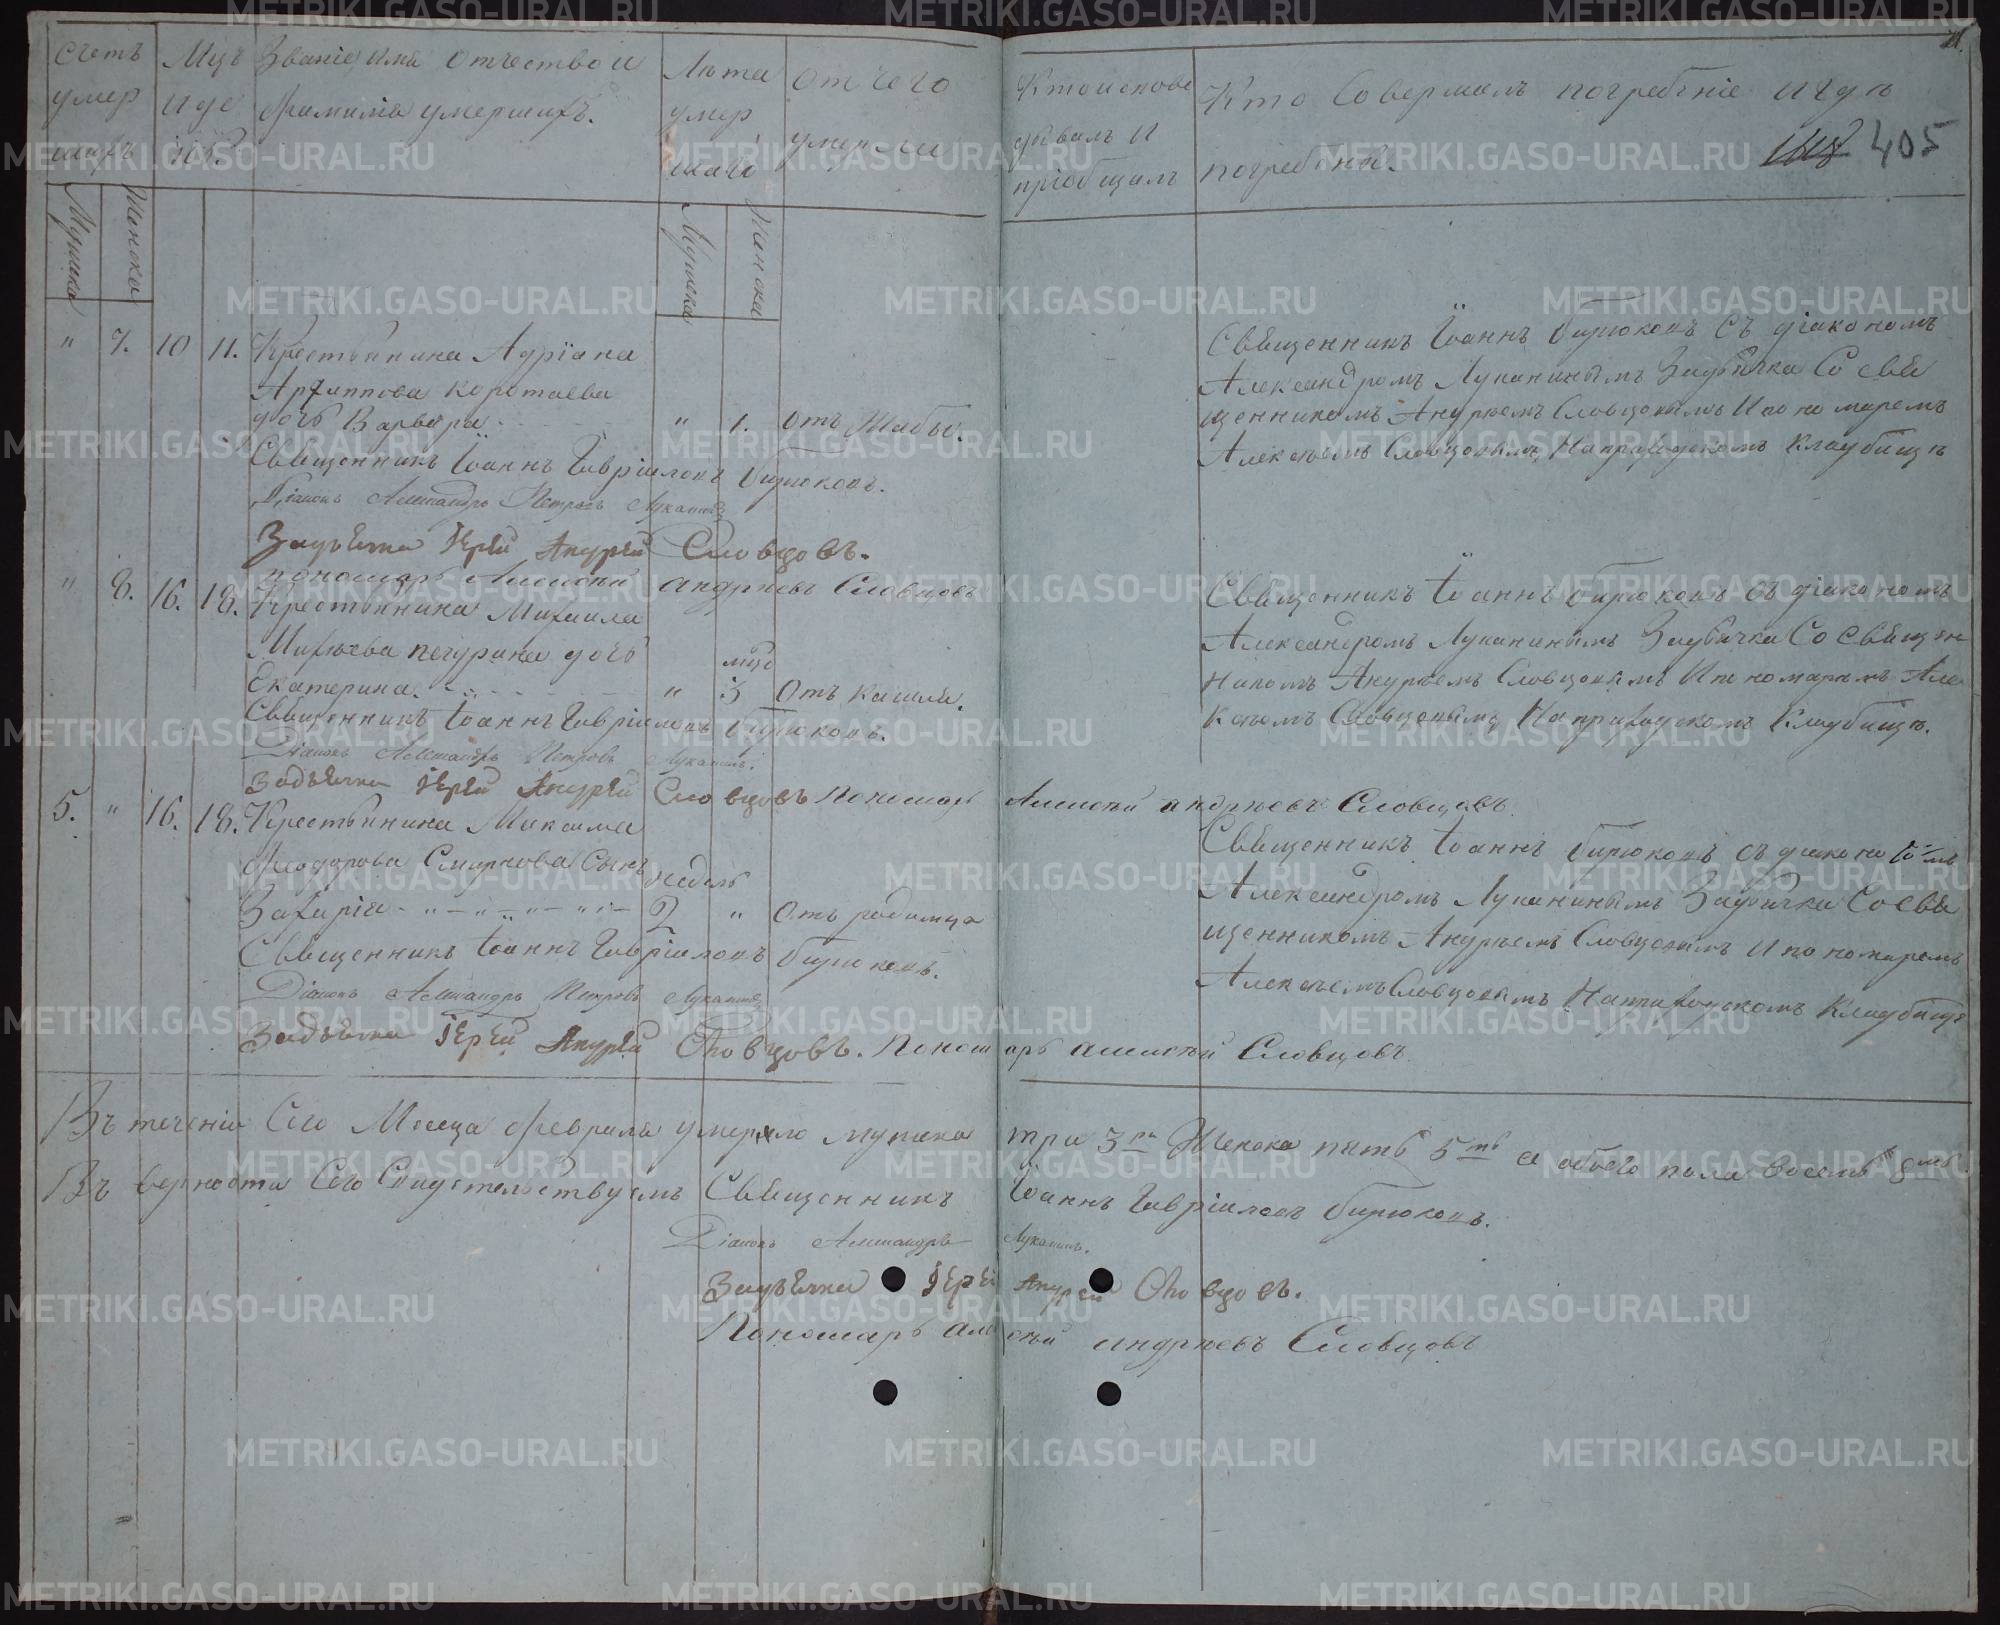 METRIKI.GASO-URAL.RU
Счетъ умер шихъ
Мцъ и де
Званіе, имя отчество и
Фамилія умершихъ.
Лѣта умер шаго
отъ чего
умерли
Кто испове
дывалъ и
пріобщалъ
Кто Совершалъ погребѣніе и гдѣ
погребены.
405
Мужеска
Женска
Мужеска
Женска
" 7. 10 11. Крестьянина Адріана
Архиппова Коротаева
дочь Варвара " 1. отъ Жабы.
Священникъ Іоаннъ Гавріиловъ Бирюковъ.
Діаконъ Александръ Петровъ Луканинъ
Задьячка Іерей Андрей Словцовъ.
пономарь Алексѣй Андреевъ Словцовъ
Священникъ Іоаннъ Бирюковъ Съ діакономъ
Александромъ Луканинымъ Задьячка Со свя
щенникомъ Андреемъ Словцовымъ И пономаремъ
Алексѣемъ Словцовымъ, На приходскомъ кладбищѣ
" 8. 16. 18. Крестьянина Михаила
Михѣева Печурина дочь
Екатерина. " 3 мцѣ Отъ кашля.
Священникъ Іоаннъ Гавріиловъ Бирюковъ.
Діаконъ Александръ Петровъ Луканинъ.
Задьячка Іерей Андрей Словцовъ Пономарь Алексѣй Андреевъ Словцовъ
Священникъ Іоаннъ Бирюковъ съ діакономъ
Александромъ Луканинымъ Задьячка Со Священ
никомъ Андреемъ Словцовымъ И пономаремъ Але
ксѣемъ Словцовымъ На приходскомъ Кладбищѣ.
5. " 16. 18. Крестьянина Максима
Феодорова Смирнова Сынъ
Захарія недель 2 " Отъ родимца
Священникъ Іоаннъ Гавріиловъ Бирюковъ.
Діаконъ Александръ Петровъ Луканинъ
Задьячка Іерей Андрей Словцовъ. Пономарь Алексѣй Словцовъ
Священникъ Іоаннъ Бирюковъ съ діакономъ
Александромъ Луканинымъ Задьячка Со свя
щенникомъ Андреемъ Словцовымъ И пономаремъ
Алексѣемъ Словцовымъ На приходскомъ Кладбищѣ
Въ теченіи Сего Месеца Февраля умерло мужеска три 3ри Женска пять 5ть а обоего пола восемь 8мь.
Въ верности Сего Свидетельствуемъ Священникъ Іоаннъ Гавріиловъ Бирюковъ.
Діаконъ Александръ Луканинъ.
Задьячка Іерей Андрей Словцовъ.
Пономарь Алексѣй Андреевъ Словцовъ